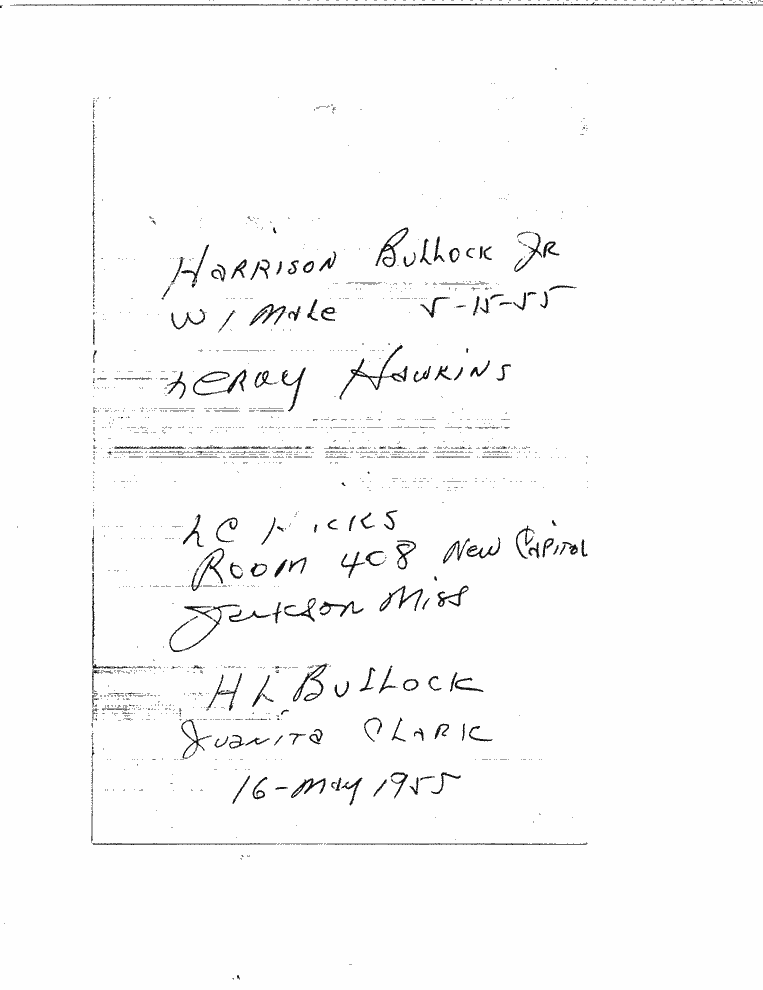 HARRISON BULLOCK JR
W / Male 5-15-55
LEROY HAWKINS
L C HICKS
ROOM 408 New CAPITOL
Jackson Miss
H L BULLOCK
JUANITA CLARK
16-May 1955